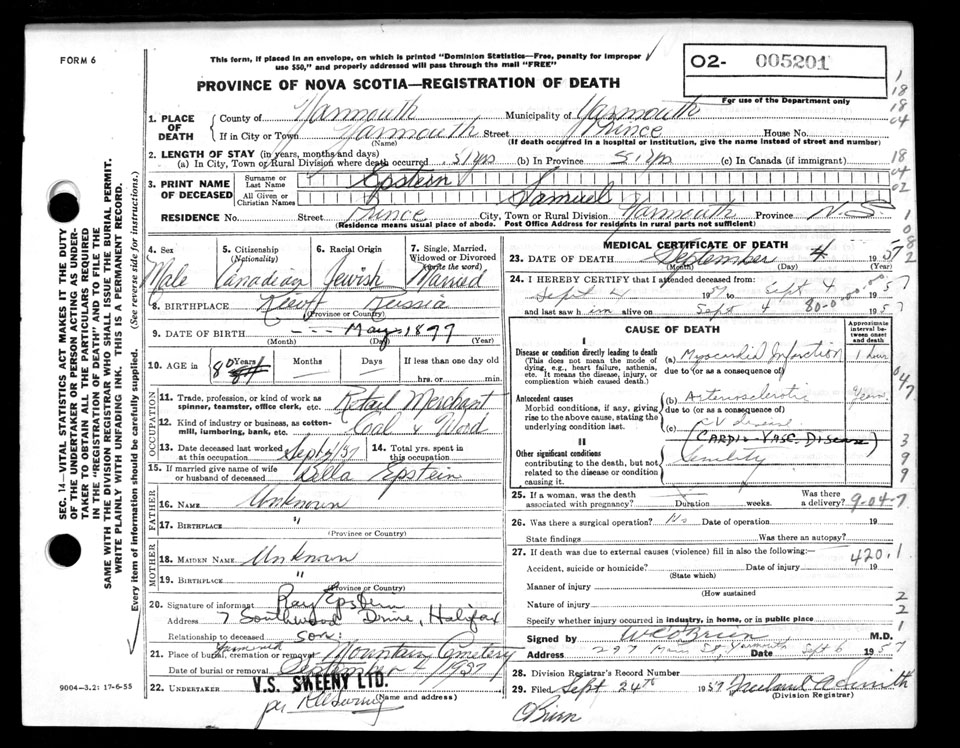 FORM 6
This form, if placed in an envelope, on which is printed "Dominion Statistics—Free, penalty for improper
use $50," and properly addressed will pass through the mail "FREE"
O2- 005201
For use of the Department only
PROVINCE OF NOVA SCOTIA—REGISTRATION OF DEATH
1. PLACE OF DEATH
County of Yarmouth Municipality of Yarmouth
If in City or Town Yarmouth Street Prince House No.
(Name) (If death occurred in a hospital or institution, give the name instead of street and number)
2. LENGTH OF STAY (in years, months and days)
(a) In City, Town or Rural Division where death occurred 51 yrs (b) In Province 51 yrs (c) In Canada (if immigrant)
3. PRINT NAME OF DECEASED
Surname or Last Name Epstein
All Given or Christian Names Samuel
RESIDENCE No. Street Prince City, Town or Rural Division Yarmouth Province N.S
(Residence means usual place of abode. Post Office Address for residents in rural parts not sufficient)
4. Sex Male
5. Citizenship (Nationality) Canadian
6. Racial Origin Jewish
7. Single, Married, Widowed or Divorced (Write the word) Married
8. BIRTHPLACE Russia
(Province or Country)
9. DATE OF BIRTH - -- May 1877
(Month) (Day) (Year)
10. AGE in 80 Years Months Days If less than one day old
hrs. or min.
OCCUPATION
11. Trade, profession, or kind of work as spinner, teamster, office clerk, etc. Retail Merchant
12. Kind of industry or business, as cotton-mill, lumbering, bank, etc. Coal & Wood
13. Date deceased last worked at this occupation
14. Total yrs. spent in this occupation
15. If married give name of wife or husband of deceased Bella Epstein
FATHER
16. NAME Unknown
17. BIRTHPLACE "
(Province or Country)
MOTHER
18. MAIDEN NAME Unknown
19. BIRTHPLACE "
(Province or Country)
20. Signature of informant Ray Epstein
Address 7 Southwood Drive, Halifax
Relationship to deceased Son:
21. Place of burial, cremation or removal Mountain Cemetery
Date of burial or removal September 1957
22. UNDERTAKER V.S. SWEENY LTD.
(Name and address)
per
MEDICAL CERTIFICATE OF DEATH
23. DATE OF DEATH September 4 1957
(Month) (Day) (Year)
24. I HEREBY CERTIFY that I attended deceased from:
Sept 4 1957 to Sept 4 1957
and last saw him alive on Sept 4 1957
CAUSE OF DEATH
Approximate interval between onset and death
I
Disease or condition directly leading to death
(This does not mean the mode of dying, e.g., heart failure, asthenia, etc. It means the disease, injury, or complication which caused death.)
(a) Myocardial Infarction 1 hour
due to (or as a consequence of)
Antecedent causes
Morbid conditions, if any, giving rise to the above cause, stating the underlying condition last.
(b) Arteriosclerotic Years
due to (or as a consequence of)
(c) CV disease
(CARDIO-VASC. DISEASE)
II
Other significant conditions
contributing to the death, but not related to the disease or condition causing it.
Senility
25. If a woman, was the death associated with pregnancy? Duration weeks. Was there a delivery?
9-04-7
26. Was there a surgical operation? No Date of operation 19
State findings Was there an autopsy?
27. If death was due to external causes (violence) fill in also the following:—
420.1
Accident, suicide or homicide? Date of injury 19
(State which)
Manner of injury
(How sustained)
Nature of injury
Specify whether injury occurred in industry, in home, or in public place
Signed by W C O'Brien M.D.
Address 297 Main St, Yarmouth Date Sept 6 1957
28. Division Registrar's Record Number
29. Filed Sept 24th 1957 Smith
(Division Registrar)
O'Brien
SEC. 14—VITAL STATISTICS ACT MAKES IT THE DUTY
OF THE UNDERTAKER OR PERSON ACTING AS UNDER-
TAKER TO OBTAIN ALL THE PARTICULARS REQUIRED
IN THE "REGISTRATION OF DEATH" AND TO FILE THE
SAME WITH THE DIVISION REGISTRAR WHO SHALL ISSUE THE BURIAL PERMIT.
WRITE PLAINLY WITH UNFADING INK. THIS IS A PERMANENT RECORD.
Every item of information should be carefully supplied. (See reverse side for instructions.)
9004—3.2: 17-6-55